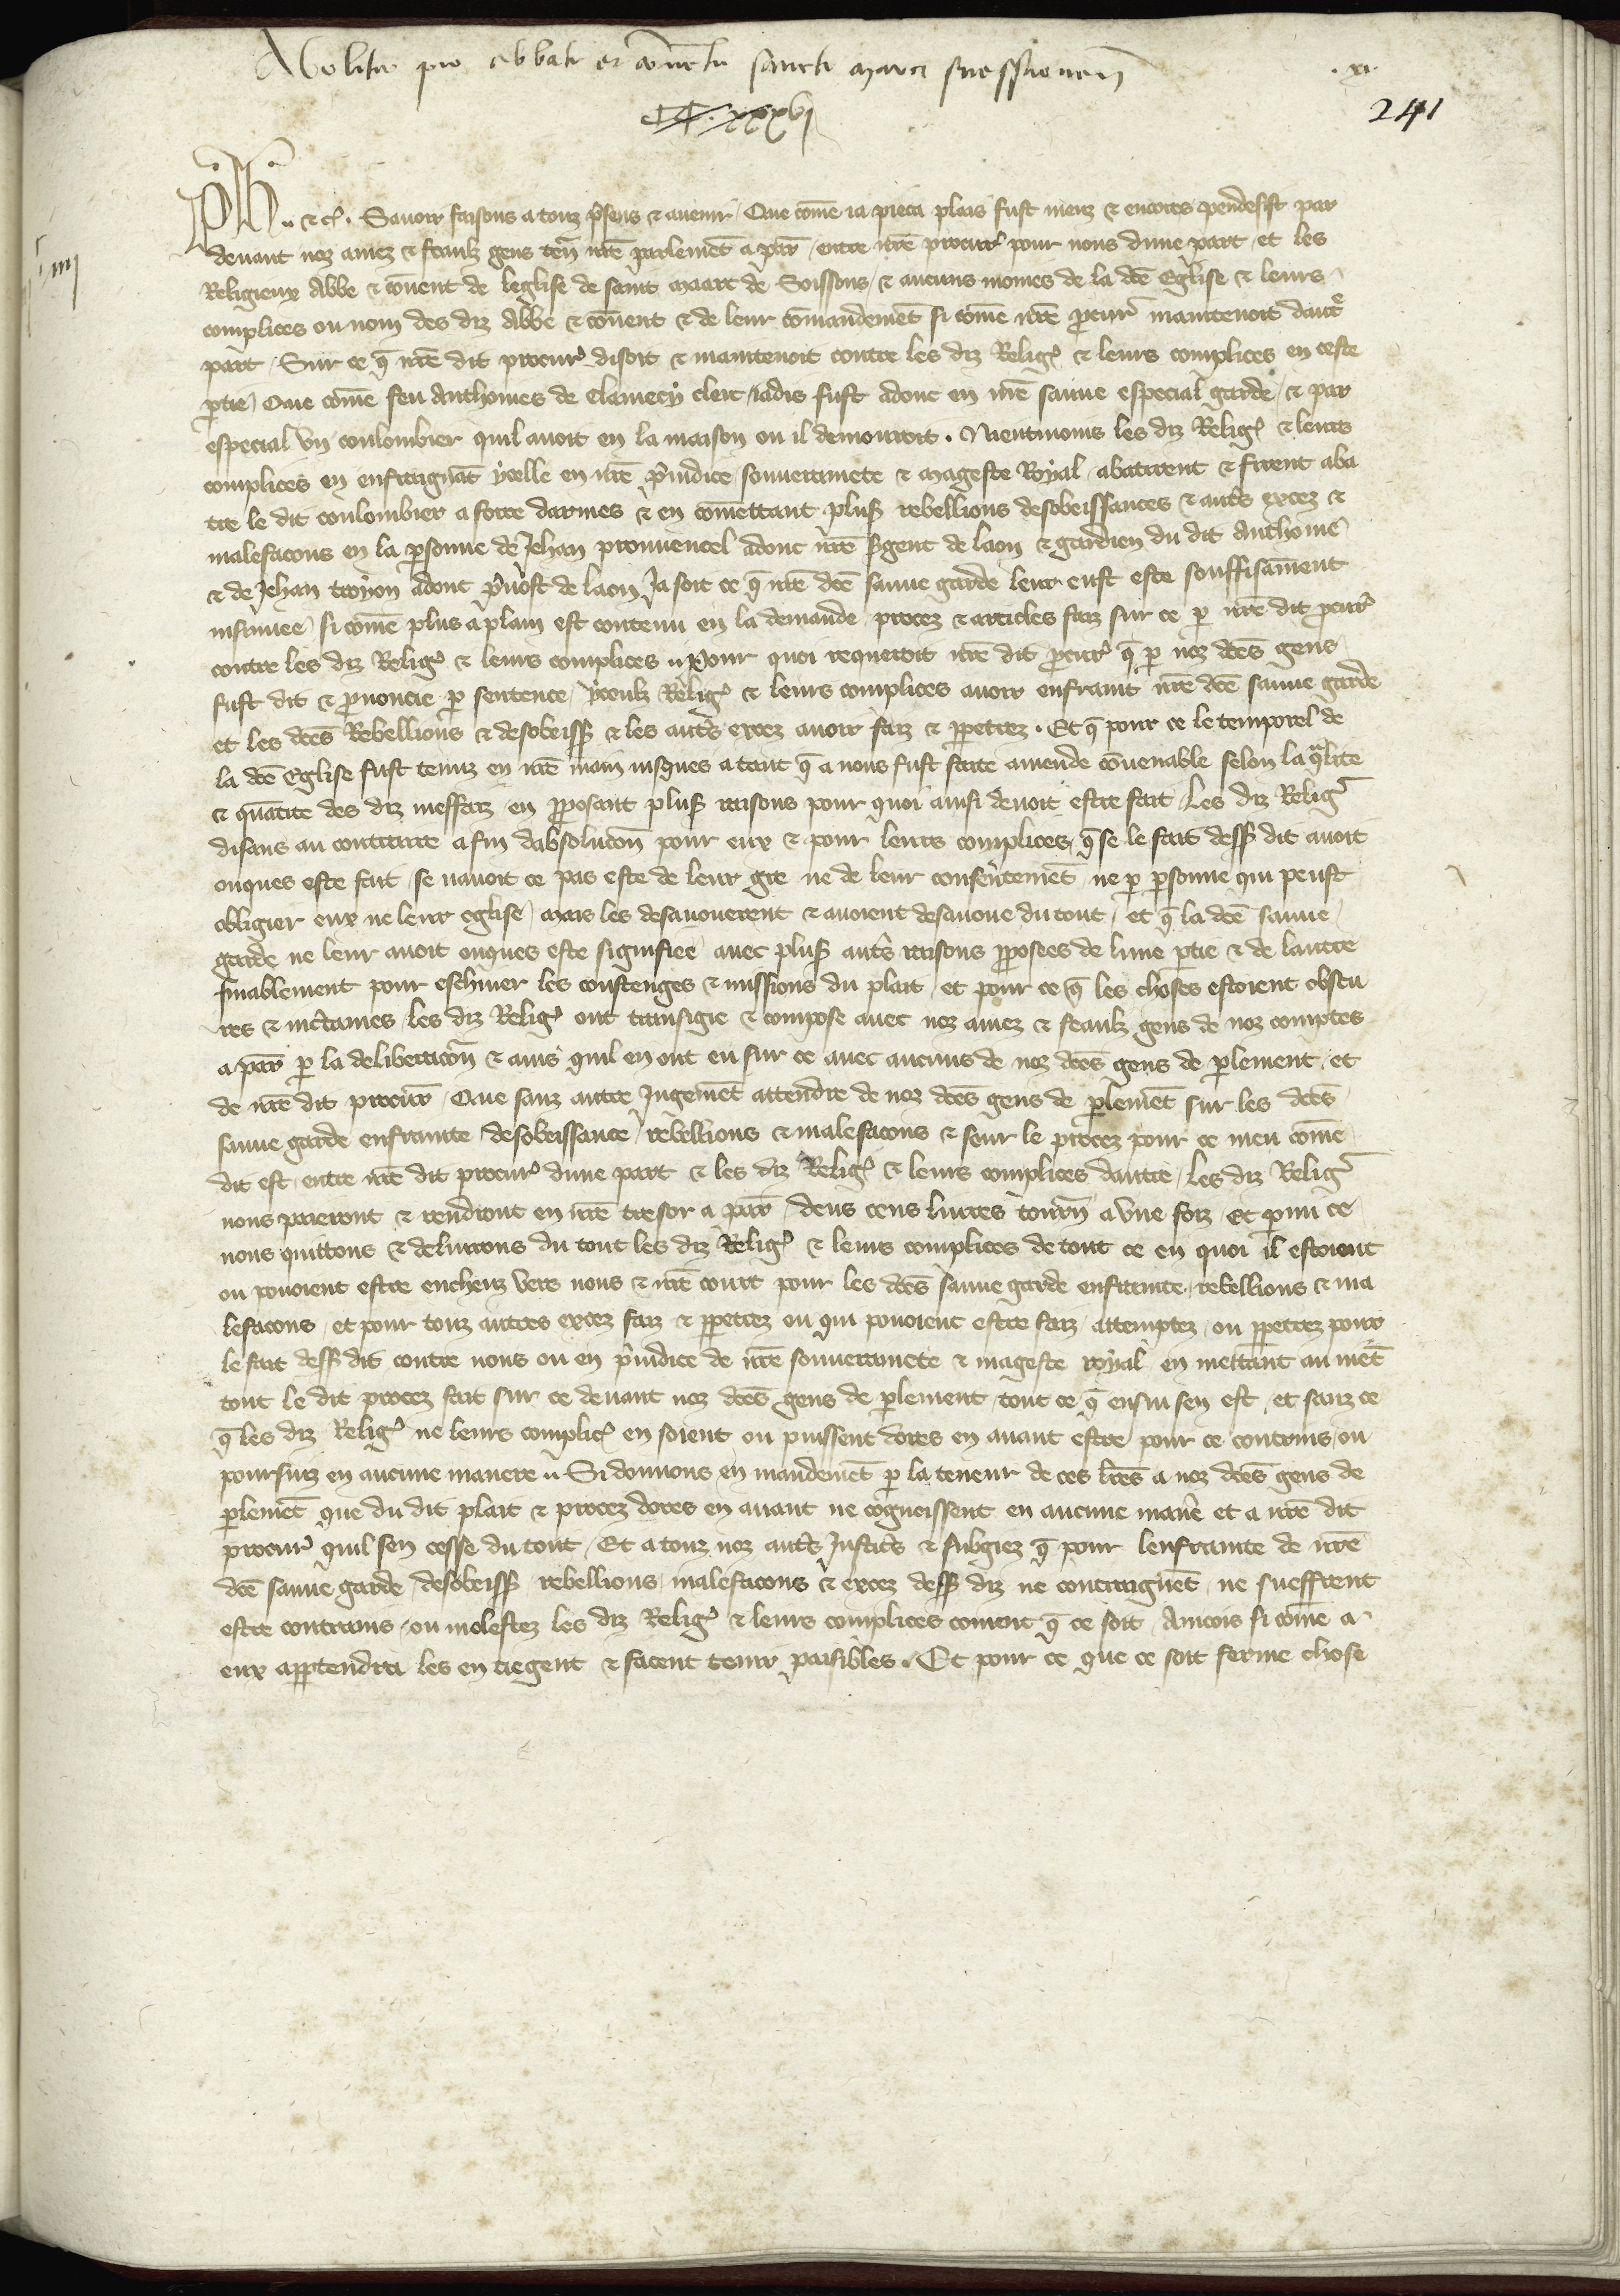 Abolitio pro abbate et conventu sancti marci suessionen̄
.xi.
CC.xxxvi
241
iiii
Ph̄ .. & c̃. Sauoir faisons a touz p̃sens & auenir Que com̄e ia pieca plais fust meuz & encores pendesist par
deuant noz amez & feaulz gens ten̄ nr̄e parlemēt a par̄ entre nr̄e procur̃ pour nous dune part et les
Religieux Abbe & couuent de leglise de saint maart de Soissons & aucuns moines de la dc̄e Eglise & leurs
complices ou nom des diz Abbe & couuent & de leur com̄andemēt si com̄e nr̄e ꝓcur̃ maintenoit dautr̃
part Sur ce q̄ nr̄e dit procur̃ disoit & maintenoit contre les diz Relig̃ & leurs complices en ceste
ptie Que com̄e feu Anthoines de Clamecy clerc iadis fust adonc en nr̄e sauue especial garde & par
especial vn coulombier quil auoit en la maison ou il demouroit . Nientmoins les diz Relig̃ & leurs
complices en enfraignāt ycelle en nr̄e p̃iudice souuerainete & mageste Royal abatirent & firent aba
tre le dit coulombier a force darmes & en com̄ettant plus̃ rebellions desobeissances & autr̃s excez &
malefacons en la psonne de Jehan prouuencel adonc nr̄e s̃gent de laon & gardien du dit Anthoine
& de Jehan troyon adonc p̃uost de laon Ja soit ce q̄ nr̄e dc̄e sauue garde leur eust este souffisam̄ent
insinuee si com̄e plus a plain est contenu en la demande procez & articles faiz sur ce p nr̄e dit ꝓcur̃
contre les diz Relig̃ & leurs complices .. Pour quoi requeroit nr̄e dit ꝓcur̃ q̄ p noz dc̄es gens
fust dit & ꝓnoncie p sentence yceulz Relig̃ & leurs complices auoir enfraint nr̄e dc̄e sauue garde
et les dc̄es Rebellions & desobeiss̃ & les autr̃s excez auoir faiz & ppetrez . Et q̄ pour ce le temporel de
la dc̄e Eglise fust tenuz en nr̄e main iusques a tant q̄ a nous fust faite amende couuenable selon la qualite
& quātite des diz meffaiz en pposant plus̃ raisons pour quoi ainsi deuoit estre fait Les diz Relig̃
disans au contraire a fin dabsolucōn pour eux & pour leurs complices q̄ se le fait dess̃ dit auoit
onques este fait se nauoit ce pas este de leur gre ne de leur consentemēt ne p psonne qui peust
obligier eux ne leur eglise mais les desauouerent & auoient desauoue du tout et q̄ la dc̄e sauue
garde ne leur auoit onques este signifiee auec plus̃ autr̃s raisons pposees de lune ptie & de lautre
finablement pour eschiuer les coustenges & missions du plait et pour ce q̄ les choses estoient obscu
res & inc̃taines les diz Relig̃ ont transigie & compose auec noz amez & feaulz gens de noz comptes
a par̄ p la deliberacōn & auis quil en ont eu sur ce auec aucuns de noz dc̄es gens de plement et
de nr̄e dit procur̄ Que sanz autre Jugemēt attendre de noz dc̄es gens de plemēt sur les dc̄es
sauue garde enfrainte desobeissance rebellions & malefacons & seur le procez pour ce meu com̄e
dit est entre nr̄e dit procur̃ dune part & les diz Relig̃ & leurs complices dautre les diz Relig̃
nous paieront & rendront en nr̄e tresor a par̄ deus cens liures tourn̄ a vne foiz Et pmi ce
nous quittons & deliurons du tout les diz Relig̃ & leurs complices de tout ce en quoi il estoient
ou pouoient estre encheuz vers nous & nr̄e court pour les dc̄es sauue garde enfrainte rebellions & ma
lefacons et pour touz autres excez faiz & ppetrez ou qui pouoient estre faiz attemptez ou ppetrez pour
le fait dess̃ dit contre nous ou en p̃iudice de nr̄e souuerainete & mageste royal en mettant au niēt
tout le dit procez fait sur ce deuant noz dc̄es gens de plement tout ce q̄ ensui sen est et sanz ce
q̄ les diz Relig̃ ne leurs complic̃ en soient ou puissent dores en auant estre pour ce contrains ou
poursuiz en aucune maniere .. Si donnons en mandemēt p la teneur de ces lr̄es a noz dc̄es gens de
plemēt que du dit plait & procez dores en auant ne cognoissent en aucune manie͂ et a nr̄e dit
procur̃ quil sen cesse du tout Et a touz noz autr̃s Justic̃s & subgiez q̄ pour lenfrainte de nr̄e
dc̄e sauue garde desobeiss̃ rebellions malefacons & excez dess̃ diz ne contraignēt ne sueffrent
estre contrains ou molestez les diz Relig̃ & leurs complices coment q̄ ce soit Aincois si com̄e a
eux apptendra les en tiegent & facent tenir paisibles . Et pour ce que ce soit ferme chose